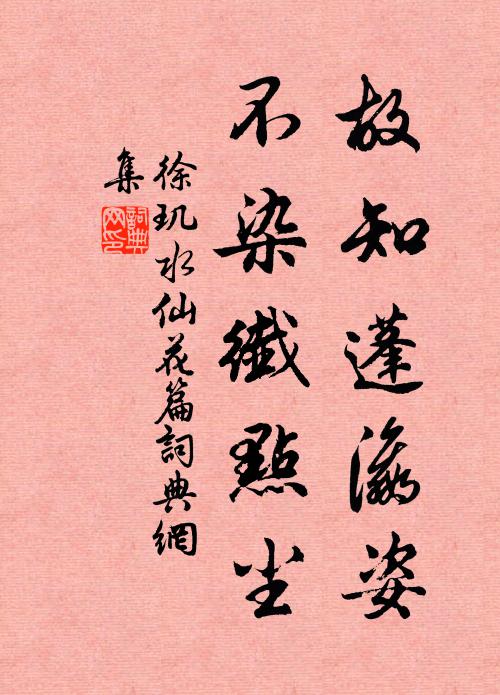 故知蓬瀛姿
不染纖點尘
徐玑水仙花篇詞典網
集
詞典網印